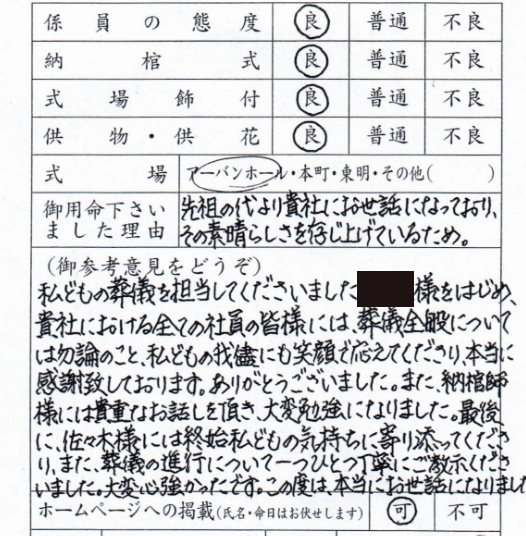 係員の態度 良 普通 不良
納棺式 良 普通 不良
式場飾付 良 普通 不良
供物・供花 良 普通 不良
式場 アーバンホール・本町・東明・その他( )
御用命下さいました理由
先祖の代より貴社にお世話になっており、
その素晴らしさを存じ上げているため。
(御参考意見をどうぞ)
私どもの葬儀を担当してくださいました 様をはじめ、
貴社における全ての社員の皆様には、葬儀全般について
は勿論のこと、私どもの我儘にも笑顔で応えてくださり、本当に
感謝致しております。ありがとうございました。また、納棺師
様には貴重なお話しを頂き、大変勉強になりました。最後
に、佐々木様には終始私どもの気持ちに寄り添ってくださ
り、また、葬儀の進行について一つひとつ丁寧にご教示くださ
いました。大変心強かったです。この度は、本当にお世話になりました
ホームページへの掲載(氏名・命日はお伏せします) 可 不可